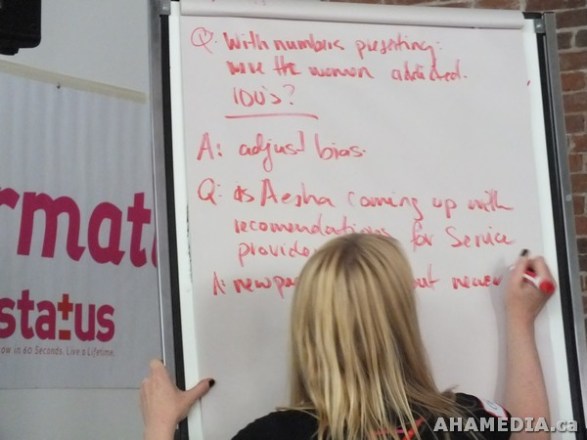 Q: With numbers presenting.
were the women addicted.
IDU's?
A: adjust bias.
Q: is Aesha coming up with
recomendations for Service
provide
A: new pa out never
rmati
sta±us
ow in 60 Seconds. Live a Lifetime.
AHAMEDIA.ca